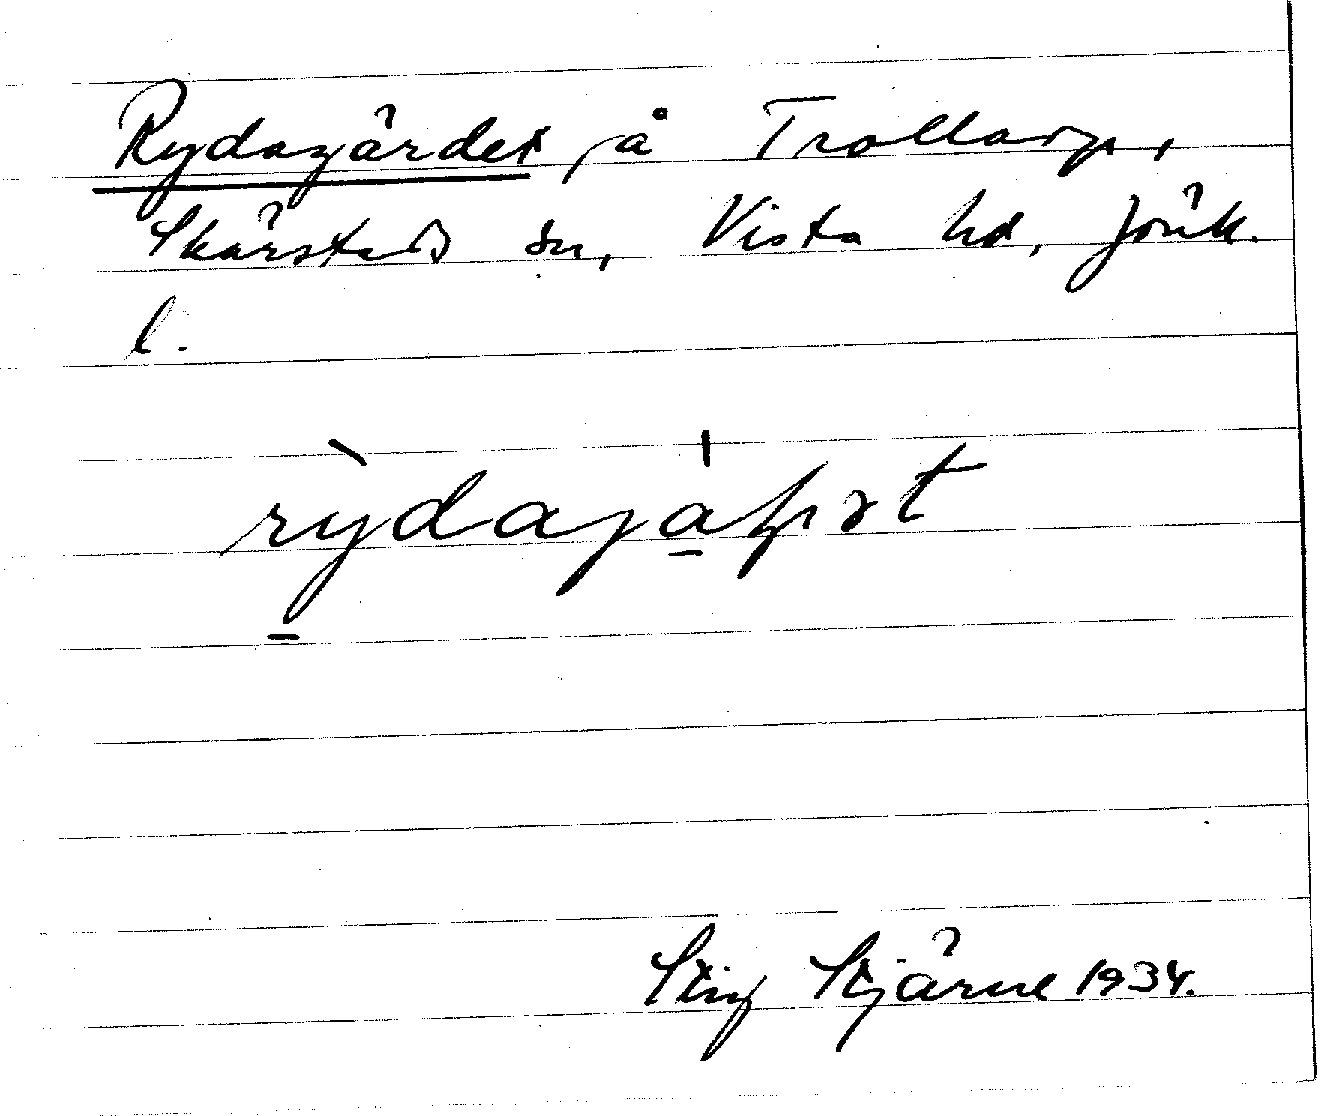 Rydagärdet på Trollarp,
Skärstads sn, Vista hd, Jönk.
l.
Stig Stjärne 1934.